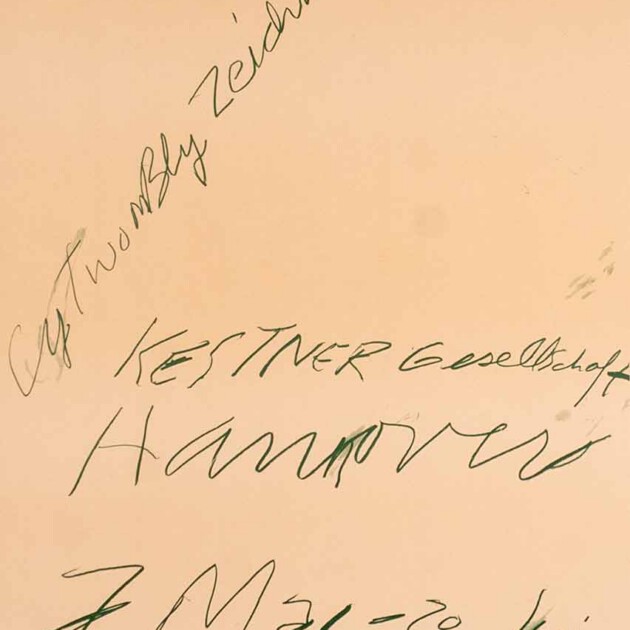 Cy TwomBly
KESTNER Gesellschaft
Hannover
7 Mai - 20